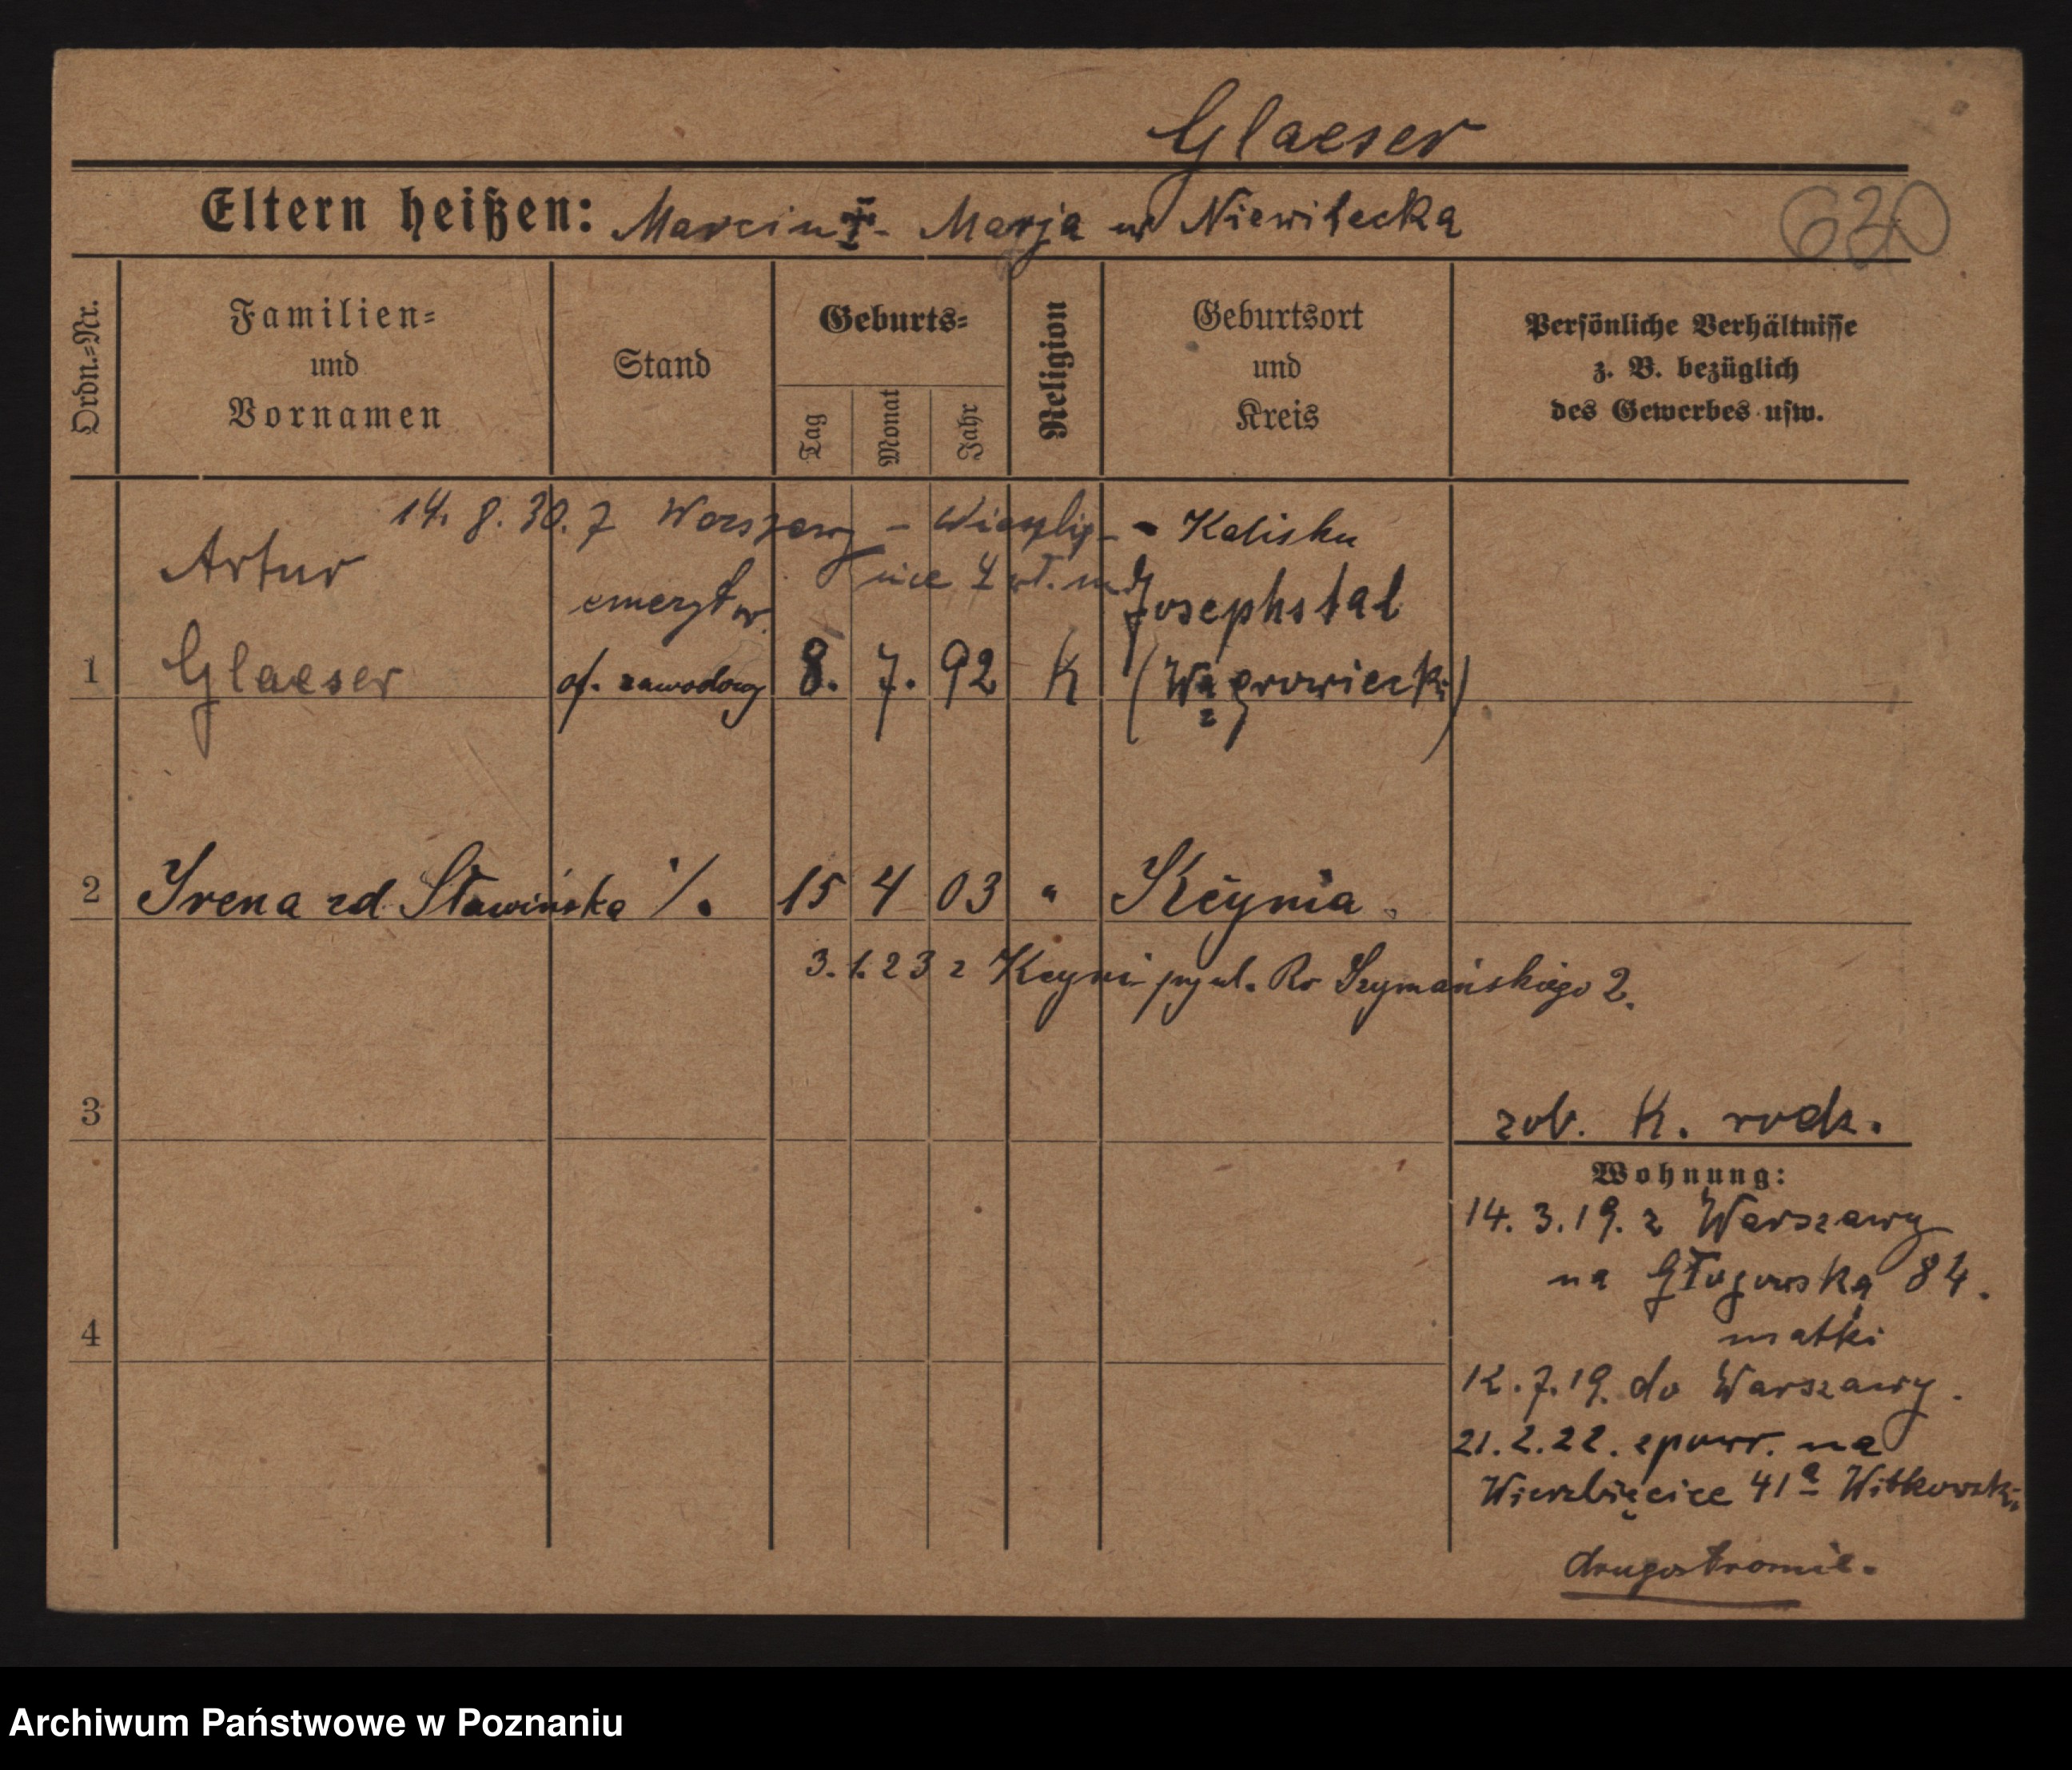 Glaeser
Eltern heißen: Marcin I. Marja ur Niewitecka
630
Ordn.=Nr.
Familien=
und
Vornamen
Stand
Geburts=
Tag
Monat
Jahr
Religion
Geburtsort
und
Kreis
Persönliche Verhältnisse
z. B. bezüglich
des Gewerbes usw.
14. 8. 30. z Warszawy - - Kalisku
Artur
emeryt w.
Josephstal
1 Glaeser of. zawodowy 8. 7. 92 K (Wągrowiecki)
2 Irena zd Sławińska ·/. 15 4 03 " Kcynia
3.1.23 z Kcyni ul. Szymańskiego 2.
3
zob. K. rodz.
Wohnung:
14. 3. 19. z Warszawy
na Głogowską 84.
matki
4
12. 7. 19. do Warszawy.
21. 2. 22. zpowr. na
Wierzbięcice 41a Witkowski
drugostronie.
Archiwum Państwowe w Poznaniu